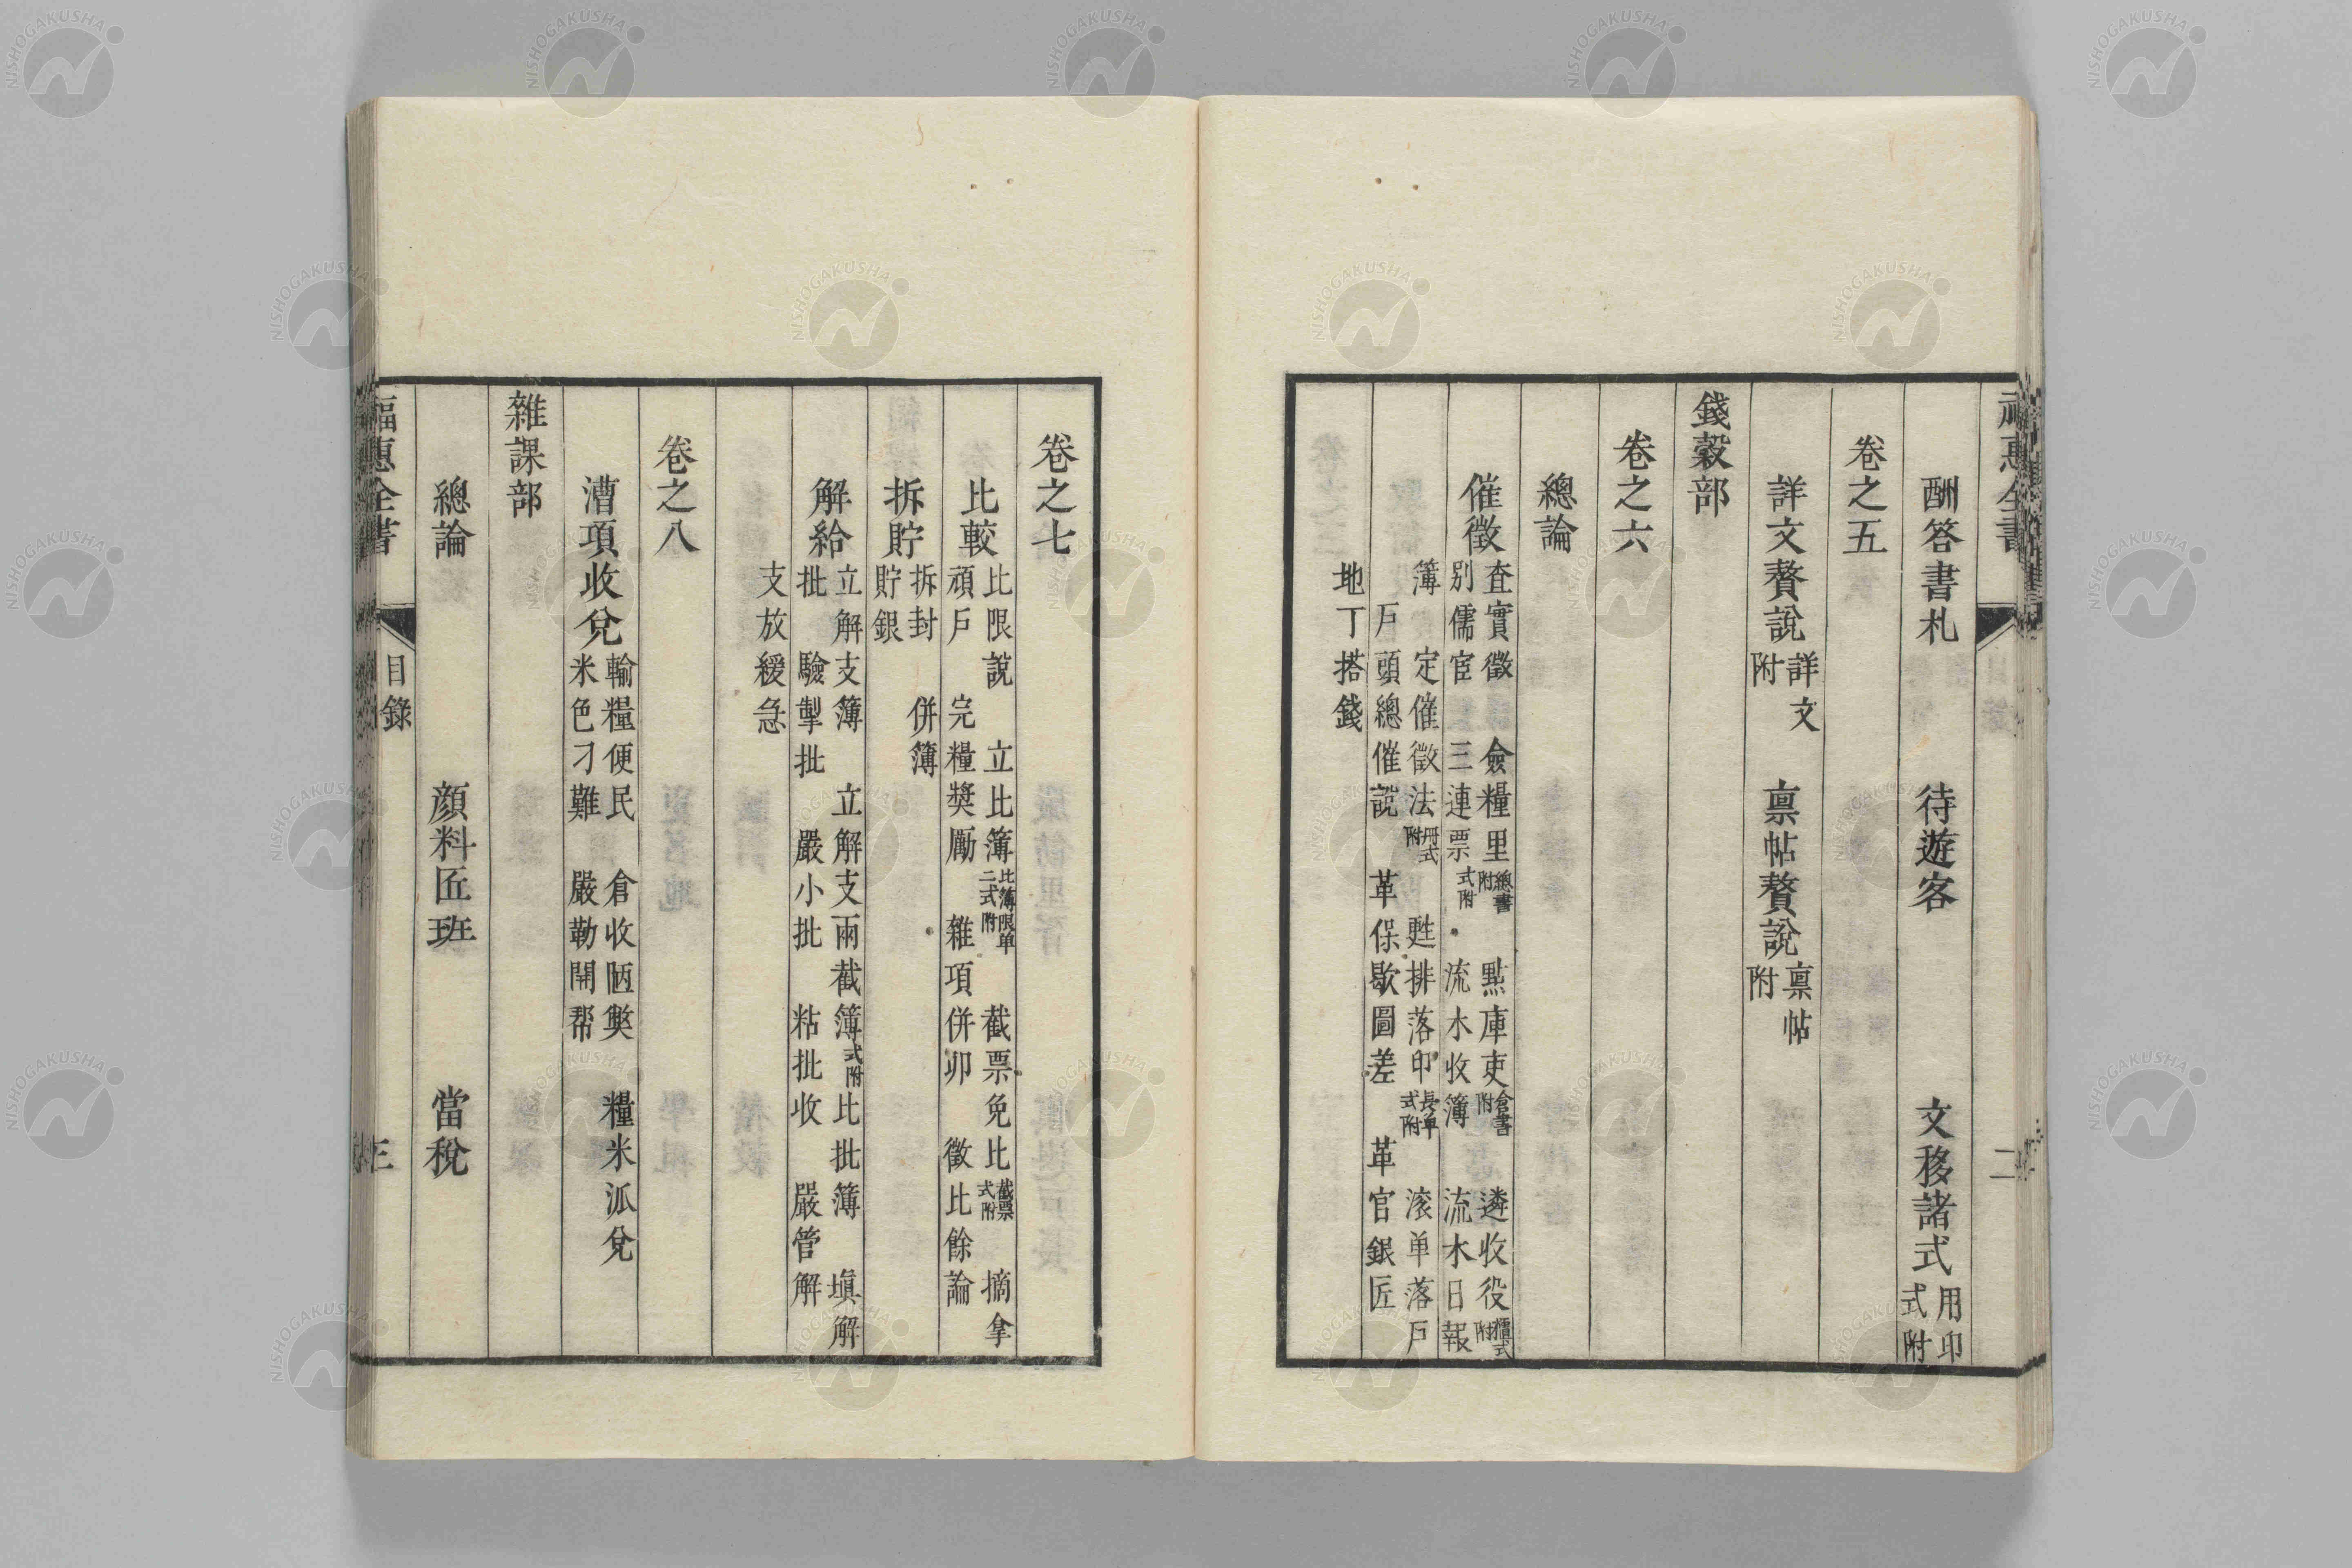 酬答書札　待遊客　文移諸式用印式附
卷之五
詳文贅說詳文附　稟帖贅說稟帖附
錢穀部
卷之六
總論
催徵查實徵　僉糧里總書附　點庫吏倉書附　遴收役櫃式附
別儒宦　三連票式附　流水收簿　流水日報
簿　定催徵法冊式附　甦排落印長单式附　滚单落戶
戶頭總催說　革保歇圖差　革官銀匠
地丁搭錢
卷之七
比較比限說　立比簿比簿限单二式附　截票免比截票式附　摘拿
頑戶　完糧獎勵　雜項併卯　徵比餘論
拆貯拆封　併簿
貯銀
解給立解支簿　立解支兩截簿式附　比批簿　塡解
批　驗掣批　嚴小批　粘批收　嚴管解
支放緩急
卷之八
漕項收兌輸糧便民　倉收陋獘　糧米派兌
米色刁難　嚴勒開帮
雜課部
總論　顏料匠班　當稅
福惠全書　目錄　三
福惠全書　二
NISHOGAKUSHA